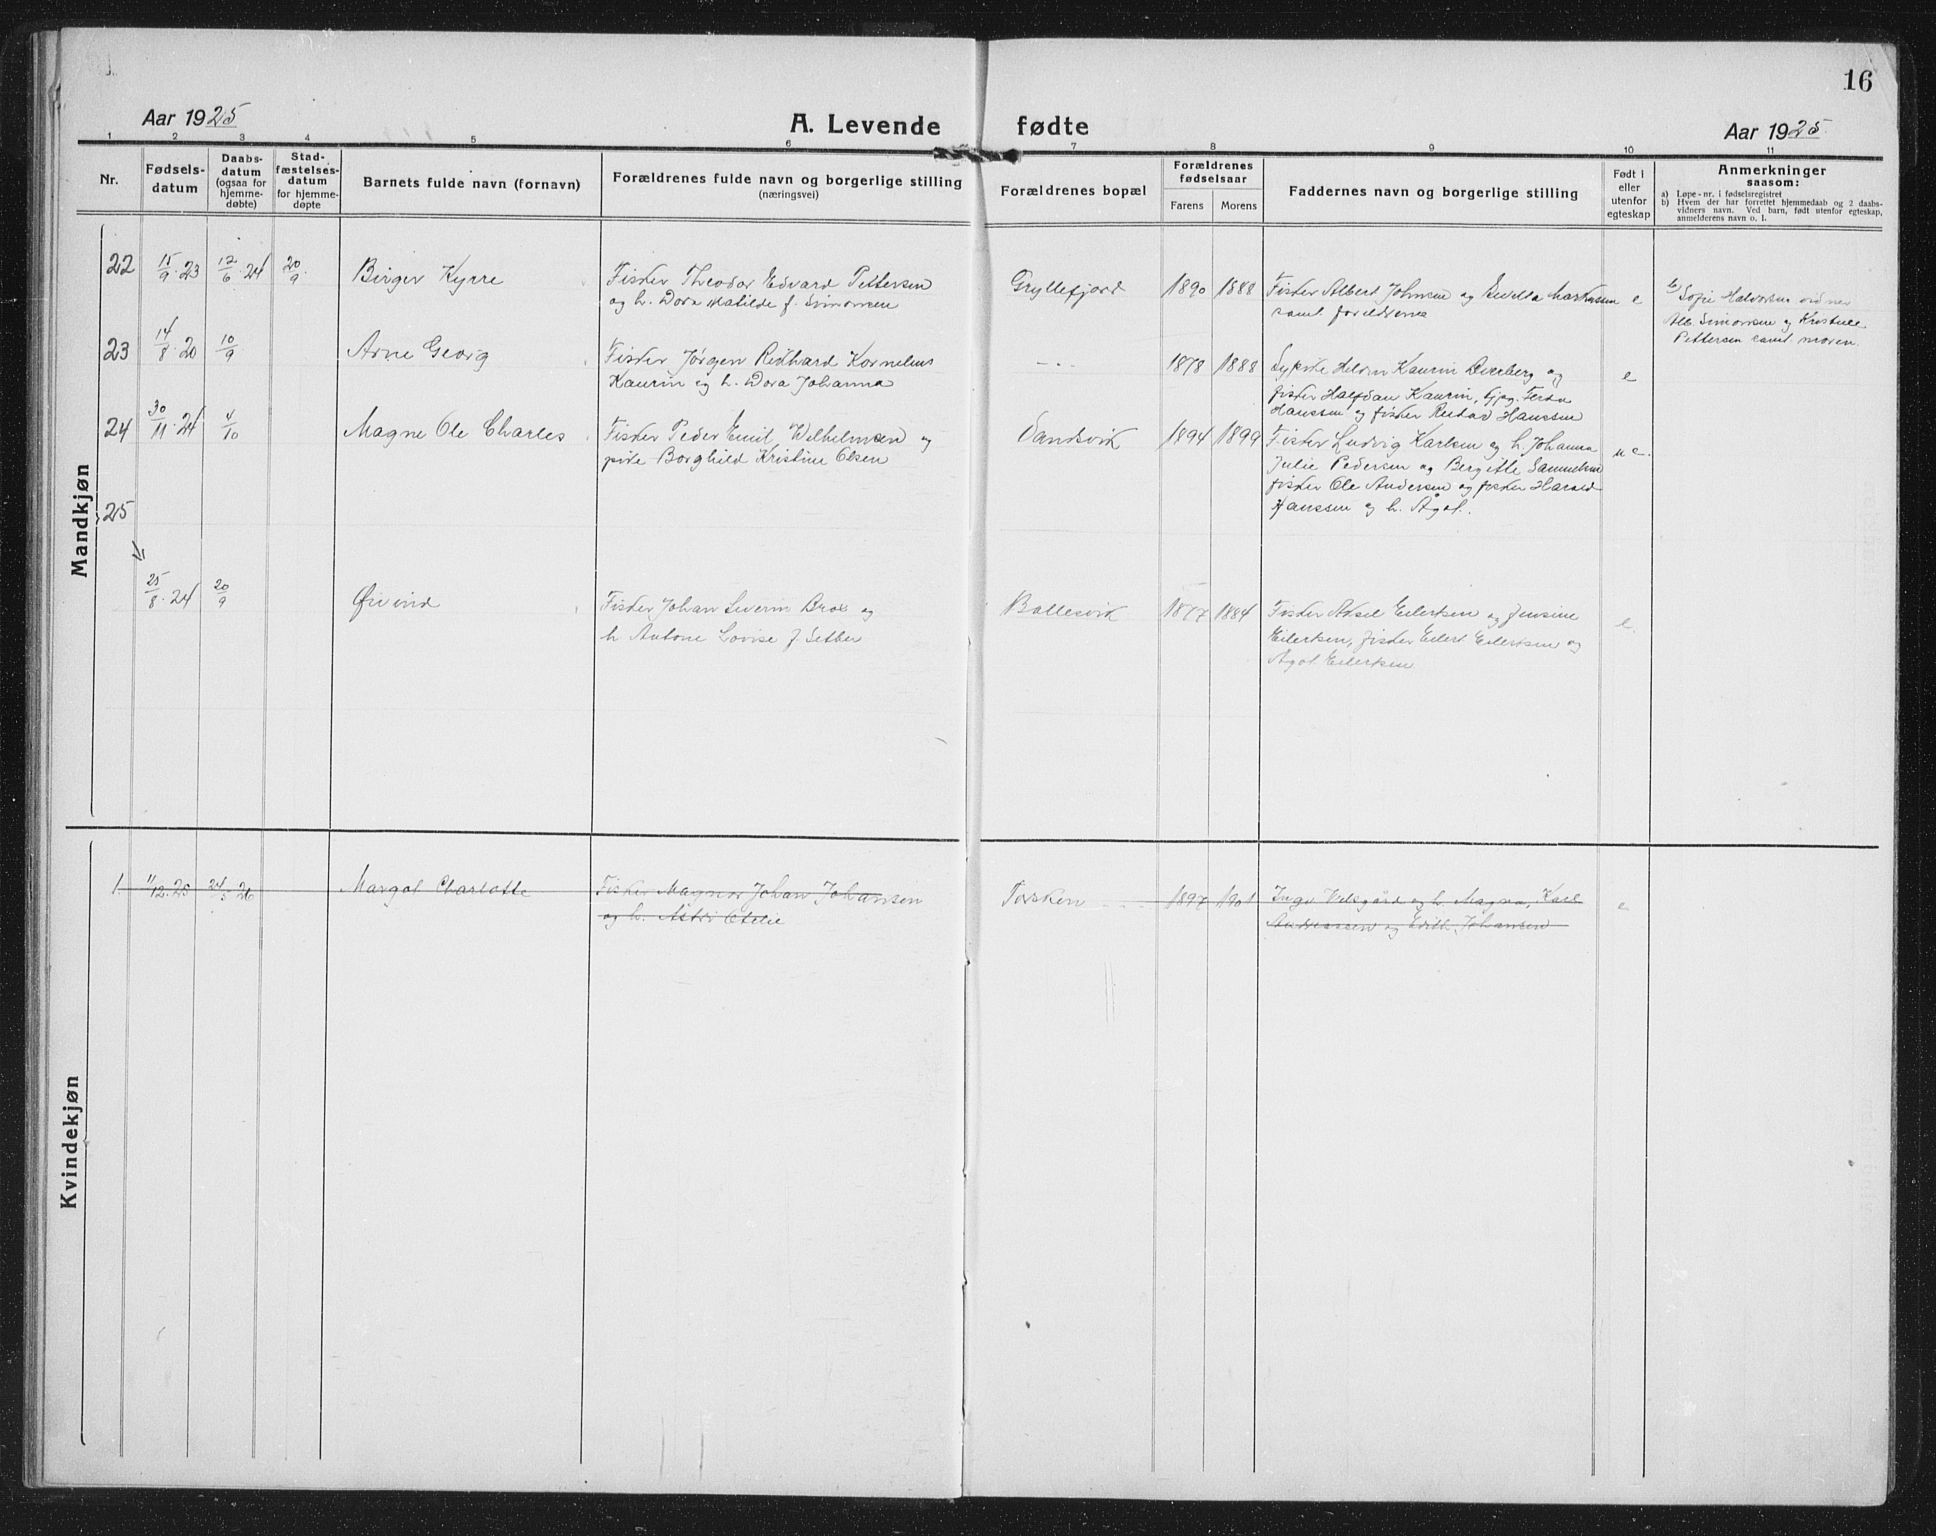 16
Aar 1925
A. Levende fødte
Aar 1925.
1 2 3 4 5 6 7 8 9 10 11
Nr.
Fødsels-
datum
Daabs-
datum
(ogsaa for
hjemme-
døbte)
Stad-
fæstelses-
datum
for hjemme-
døpte
Barnets fulde navn (fornavn)
Forældrenes fulde navn og borgerlige stilling
(næringsvei)
Forældrenes bopæl
Forældrenes
fødselsaar
Farens Morens
Faddernes navn og borgerlige stilling
Født i
eller
utenfor
egteskap
Anmerkninger
saasom:
a) Løpe-nr. i fødselsregistret
b) Hvem der har forrettet hjemmedaab og 2 daabs-
vidners navn. Ved barn, født utenfor egteskap,
anmelderens navn o. l.
Mandkjøn
22 15/9.23 12/6.24 20/9. Birger Kyrre Fisker Theodor Edvard Pettersen Gryllefjord 1890 1888 Fisker Albert Johnsen og e
og h. Dora Matilde f. Simonsen
samt foreldrene
b) Sofie Halvorsen vidner
Alb. Simonsen og
Pettersen samt moren.
23 14/8.20 10/9 Arne Georg Fisker Jørgen Rikhard Kornelius -..- 1878 1888 Kaurin og e
Kaurin og h. Dora Johanna
fisker Halfdan Kaurin,
Hanssen og fisker Hanssen
24 30/11.24 4/10 Magne Ole Charles Fisker Peder Emil Wilhelmsen og 1894 1899 Fisker Ludvig Karlsen og h. Johanna u e.
pike Borghild Kristine Olsen
Julie Pedersen og Bergitte
fisker Ole Andersen og fisker Harald
Hanssen og h. Ågot.
25
25/8.24 20/9 Øivind Fisker Johan Severin Brox og Ballesvik 1877 1884 Fisker Aksel Eilertsen og Jensine e.
h Antone Lovise f.
Eilertsen, fisker Eilert Eilertsen og
Agot Eilertsen
Kvindekjøn
1. 11/12.25 24/5 26 Margot Charlotte Fisker Magnor Johan Johansen Torsken 1897 1901 og h. Magna, Karl e
og h. Astri Otelie
Andreassen og Edith Johansen